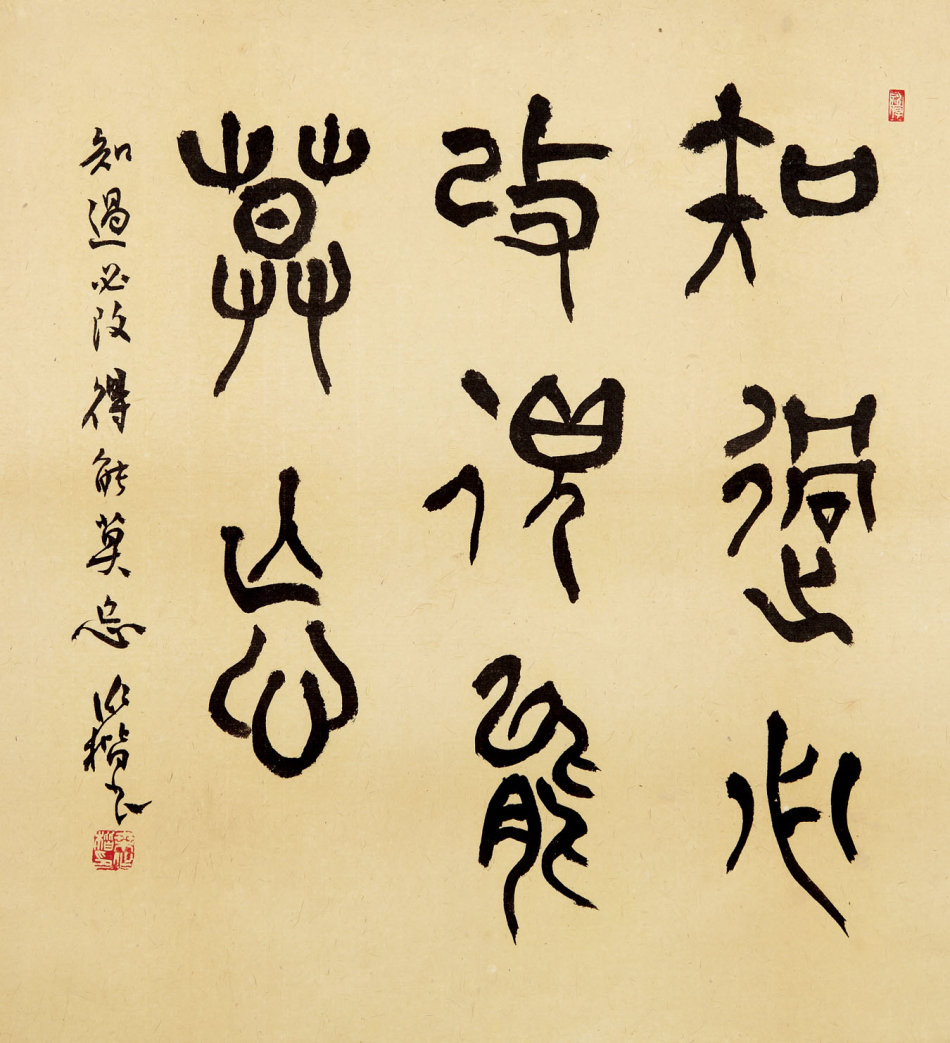 知過必
改得能
莫忘
知過必改得能莫忘 楷書